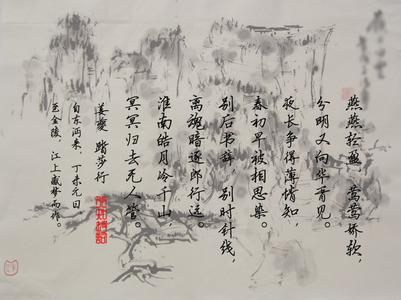 燕燕轻盈，莺莺娇软，
分明又向华胥见。
夜长争得薄情知，
春初早被相思染。
别后书辞，别时针线，
离魂暗逐郎行远。
淮南皓月冷千山，
冥冥归去无人管。
姜夔 踏莎行
自东沔来，丁未元日，
至金陵，江上感梦而作。